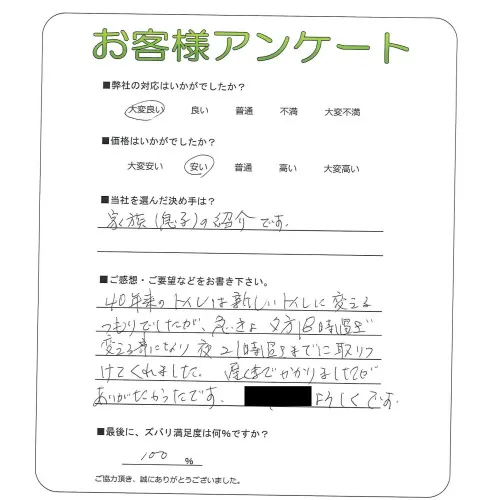 お客様アンケート
■弊社の対応はいかがでしたか?
大変良い 良い 普通 不満 大変不満
■価格はいかがでしたか?
大変安い 安い 普通 高い 大変高い
■当社を選んだ決め手は?
家族(息子)の紹介です.
■ご感想・ご要望などをお書き下さい。
40年来のトイレは新しいトイレに変える
つもりでしたが、急きょ夕方18時過ぎ
変える事になり夜21時過ぎまでに取りつ
けてくれました. 遅くまでかかりましたが
ありがたかったです. よろしくです.
■最後に、ズバリ満足度は何%ですか?
100 %
ご協力頂き、誠にありがとうございました。